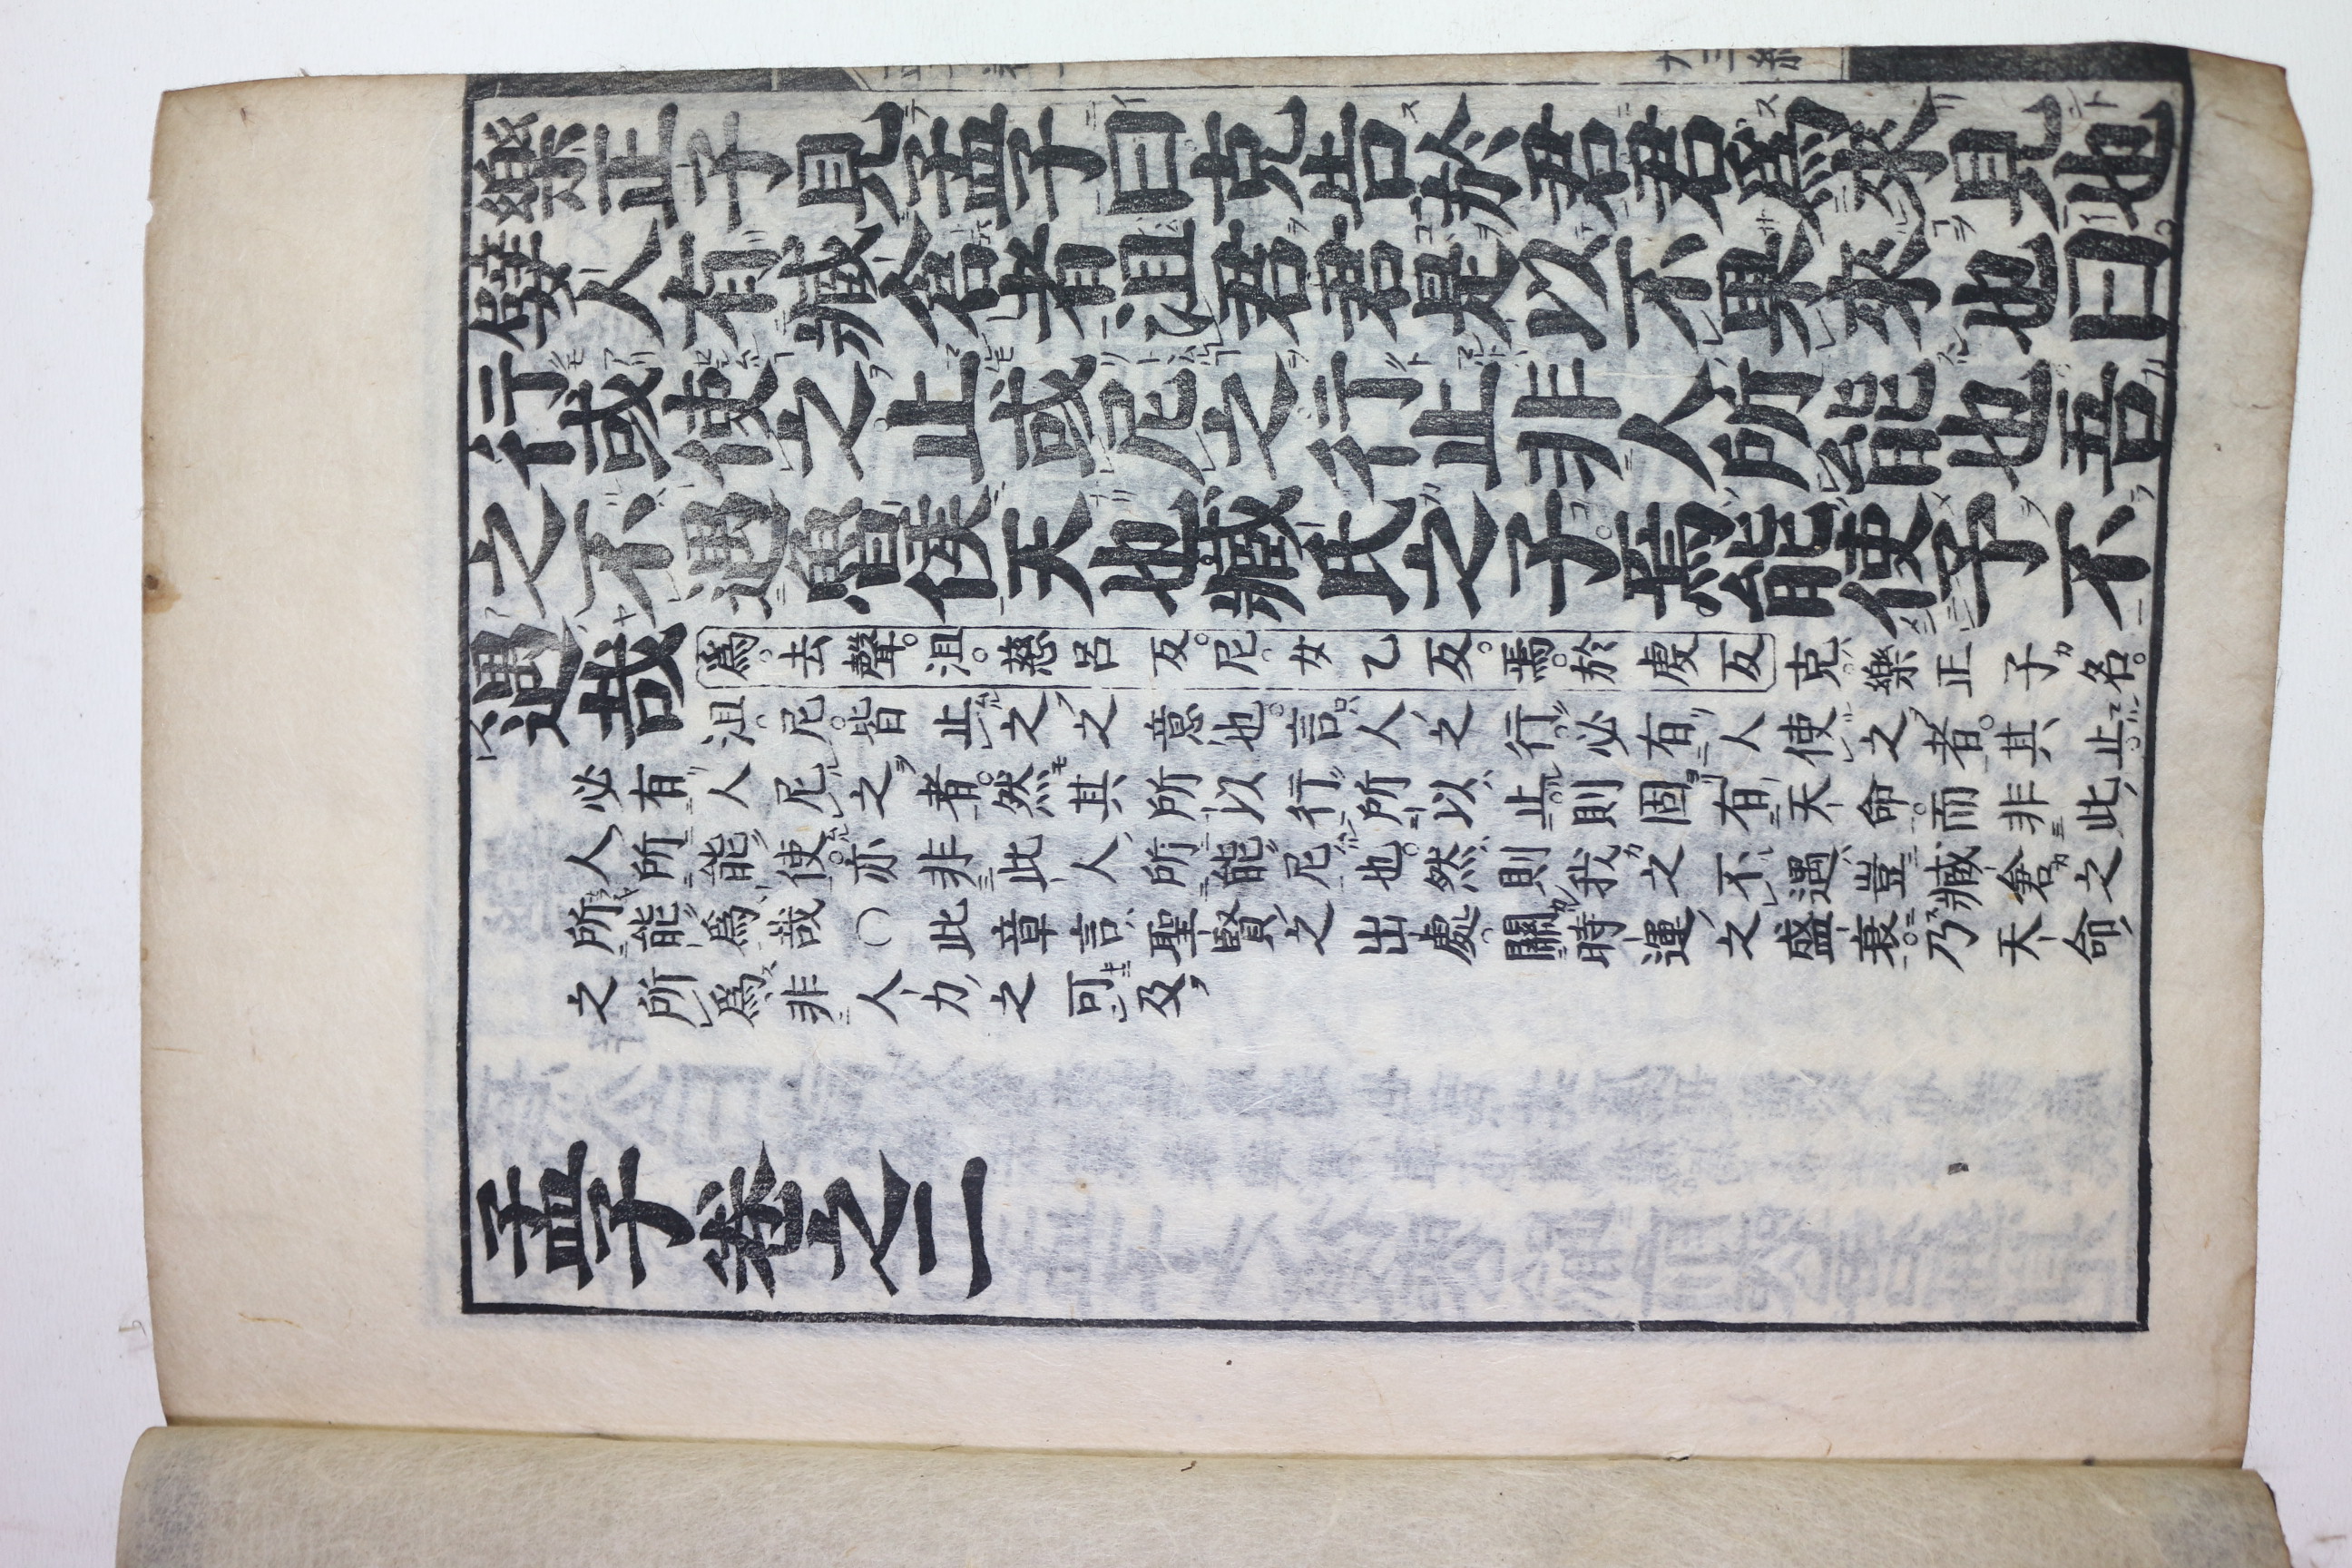 樂正子見孟子曰克告於君君爲來見也
嬖人有臧倉者沮君君是以不果來也曰
行或使之止或尼之行止非人所能也吾
之不遇魯侯天也臧氏之子焉能使予不
遇哉
爲去聲。沮。慈呂反。尼。女乙反。焉。於虔反克。樂正子名。
沮。尼。皆止之之意也。言人之行。必有人使之者。其止。
必有人尼之者。然其所以行所以止。則固有天命。而非此
人所能使。亦非此人所能尼也。然則我之不遇豈臧倉之
所能爲哉○此章言聖賢之出處。關時運之盛衰。乃天命
之所爲非人力之可及
孟子卷之二